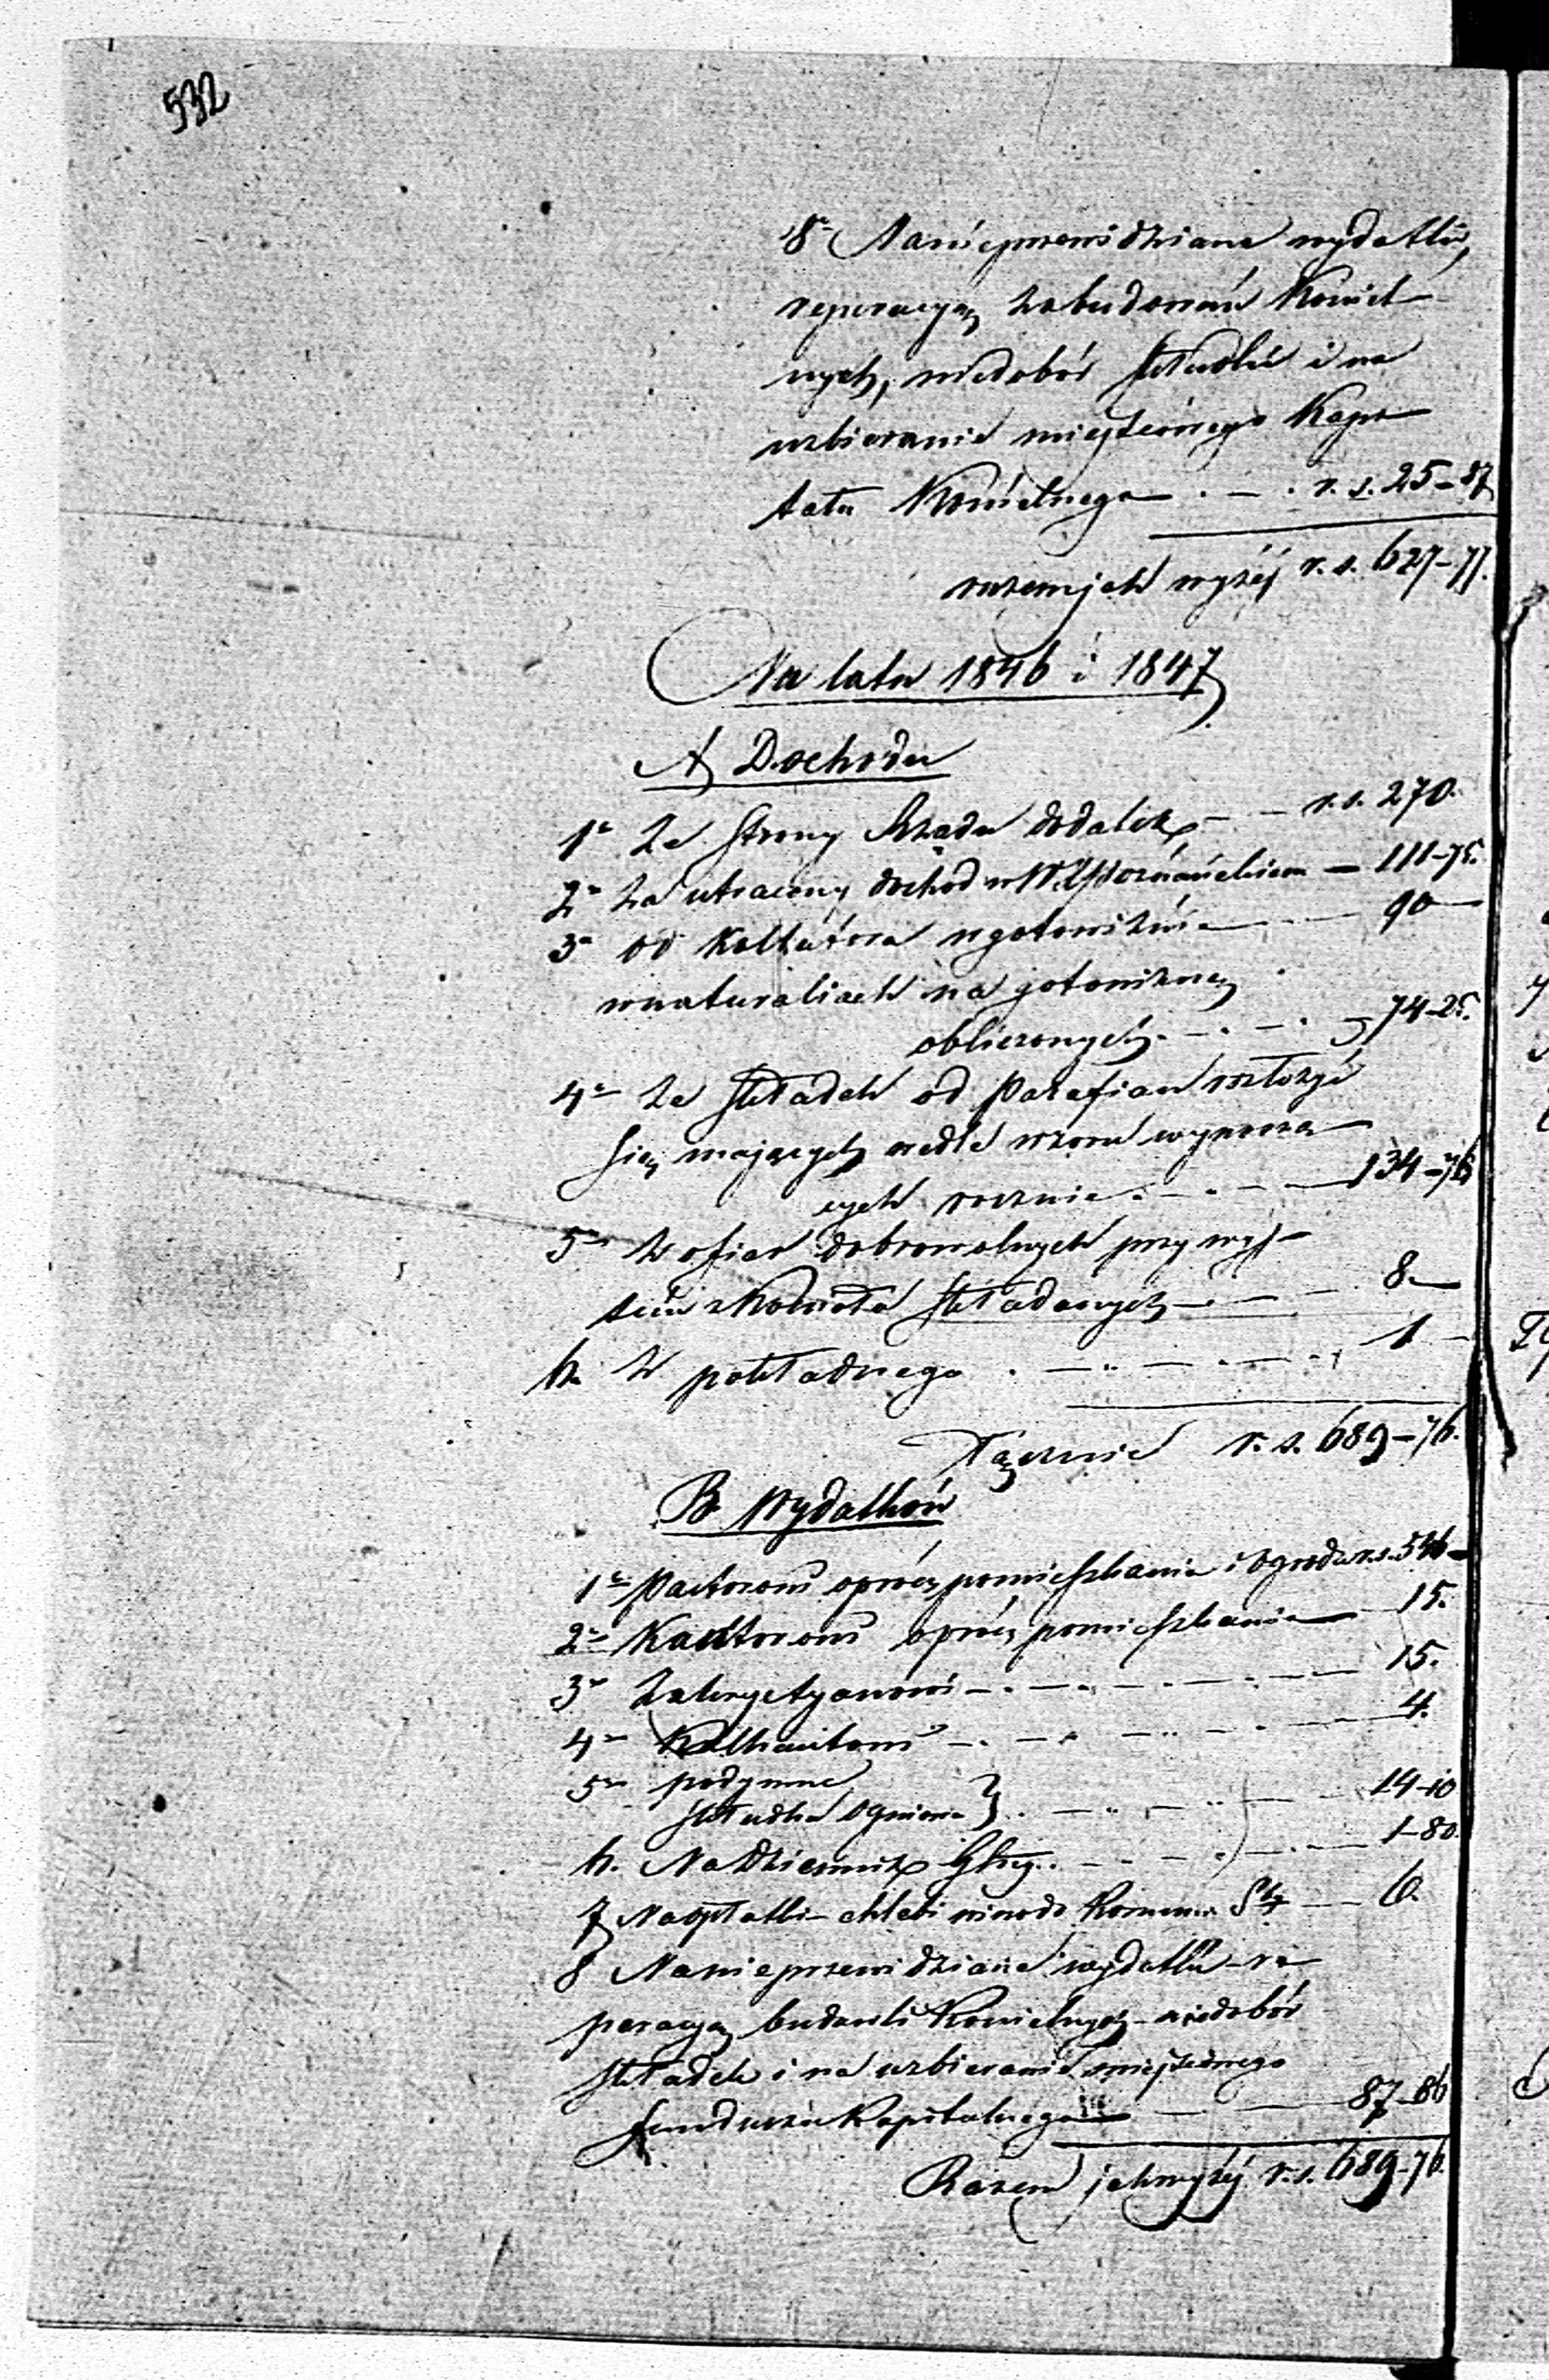 532
8° Na nieprzewidziane wydatki,
reperacyą zabudowań Kościel-
nych, niedobór składki i na
uzbieranie miejscowego Kapi-
tału Kościelnego . — . r. s. 25–87
razem jak wyżéj r. s. 627–77.
Na lata 1846 i 1847
A, Dochodu
1° Ze strony Rządu dodatek — — r. s. 270.
2° Za utracony dochód w W. X. Poznańskiem — 111–75.
3° od Kollatora w gotowiźnie — — 90 —
w naturaliach na gotowiznę
obliczonych . — . — . — 74–25.
4° Ze składek od Parafian rozłożyć
się mających wedle wzoru wynoszą-
cych rocznie . — . — . — 134–76
5° Z ofiar dobrowolnych przy wyj-
ściu z Kościoła składanych — . — . — 8 —
6. Z pokładnego . — .. — . — . — 1 —
Łącznie r. s. 689–76.
B. Wydatków
1° Pastorowi oprócz pomieszkania i ogrodu r. s. 546 —
2° Kantorowi oprócz pomieszkania — 15.
3° Zakrystyanowi — . — . — . — . — 15.
4° Kalkantowi — . — . — .. — . — 4.
5° podymne
składka ogniowa } . . — .. — .. — 14–10
6. Na Dziennik Gbny. . — . — . — . — 1–80.
7 Na opłatki – chleb i wino do Kommunii Stéj — — 6.
8 Na nieprzewidziane wydatki – re-
peracyą budowli Kościelnych – niedobór
składek i na uzbieranie miejscowego
funduszu Kapitalnego — — — 87–86
Razem jak wyżéj r. s. 689–76.